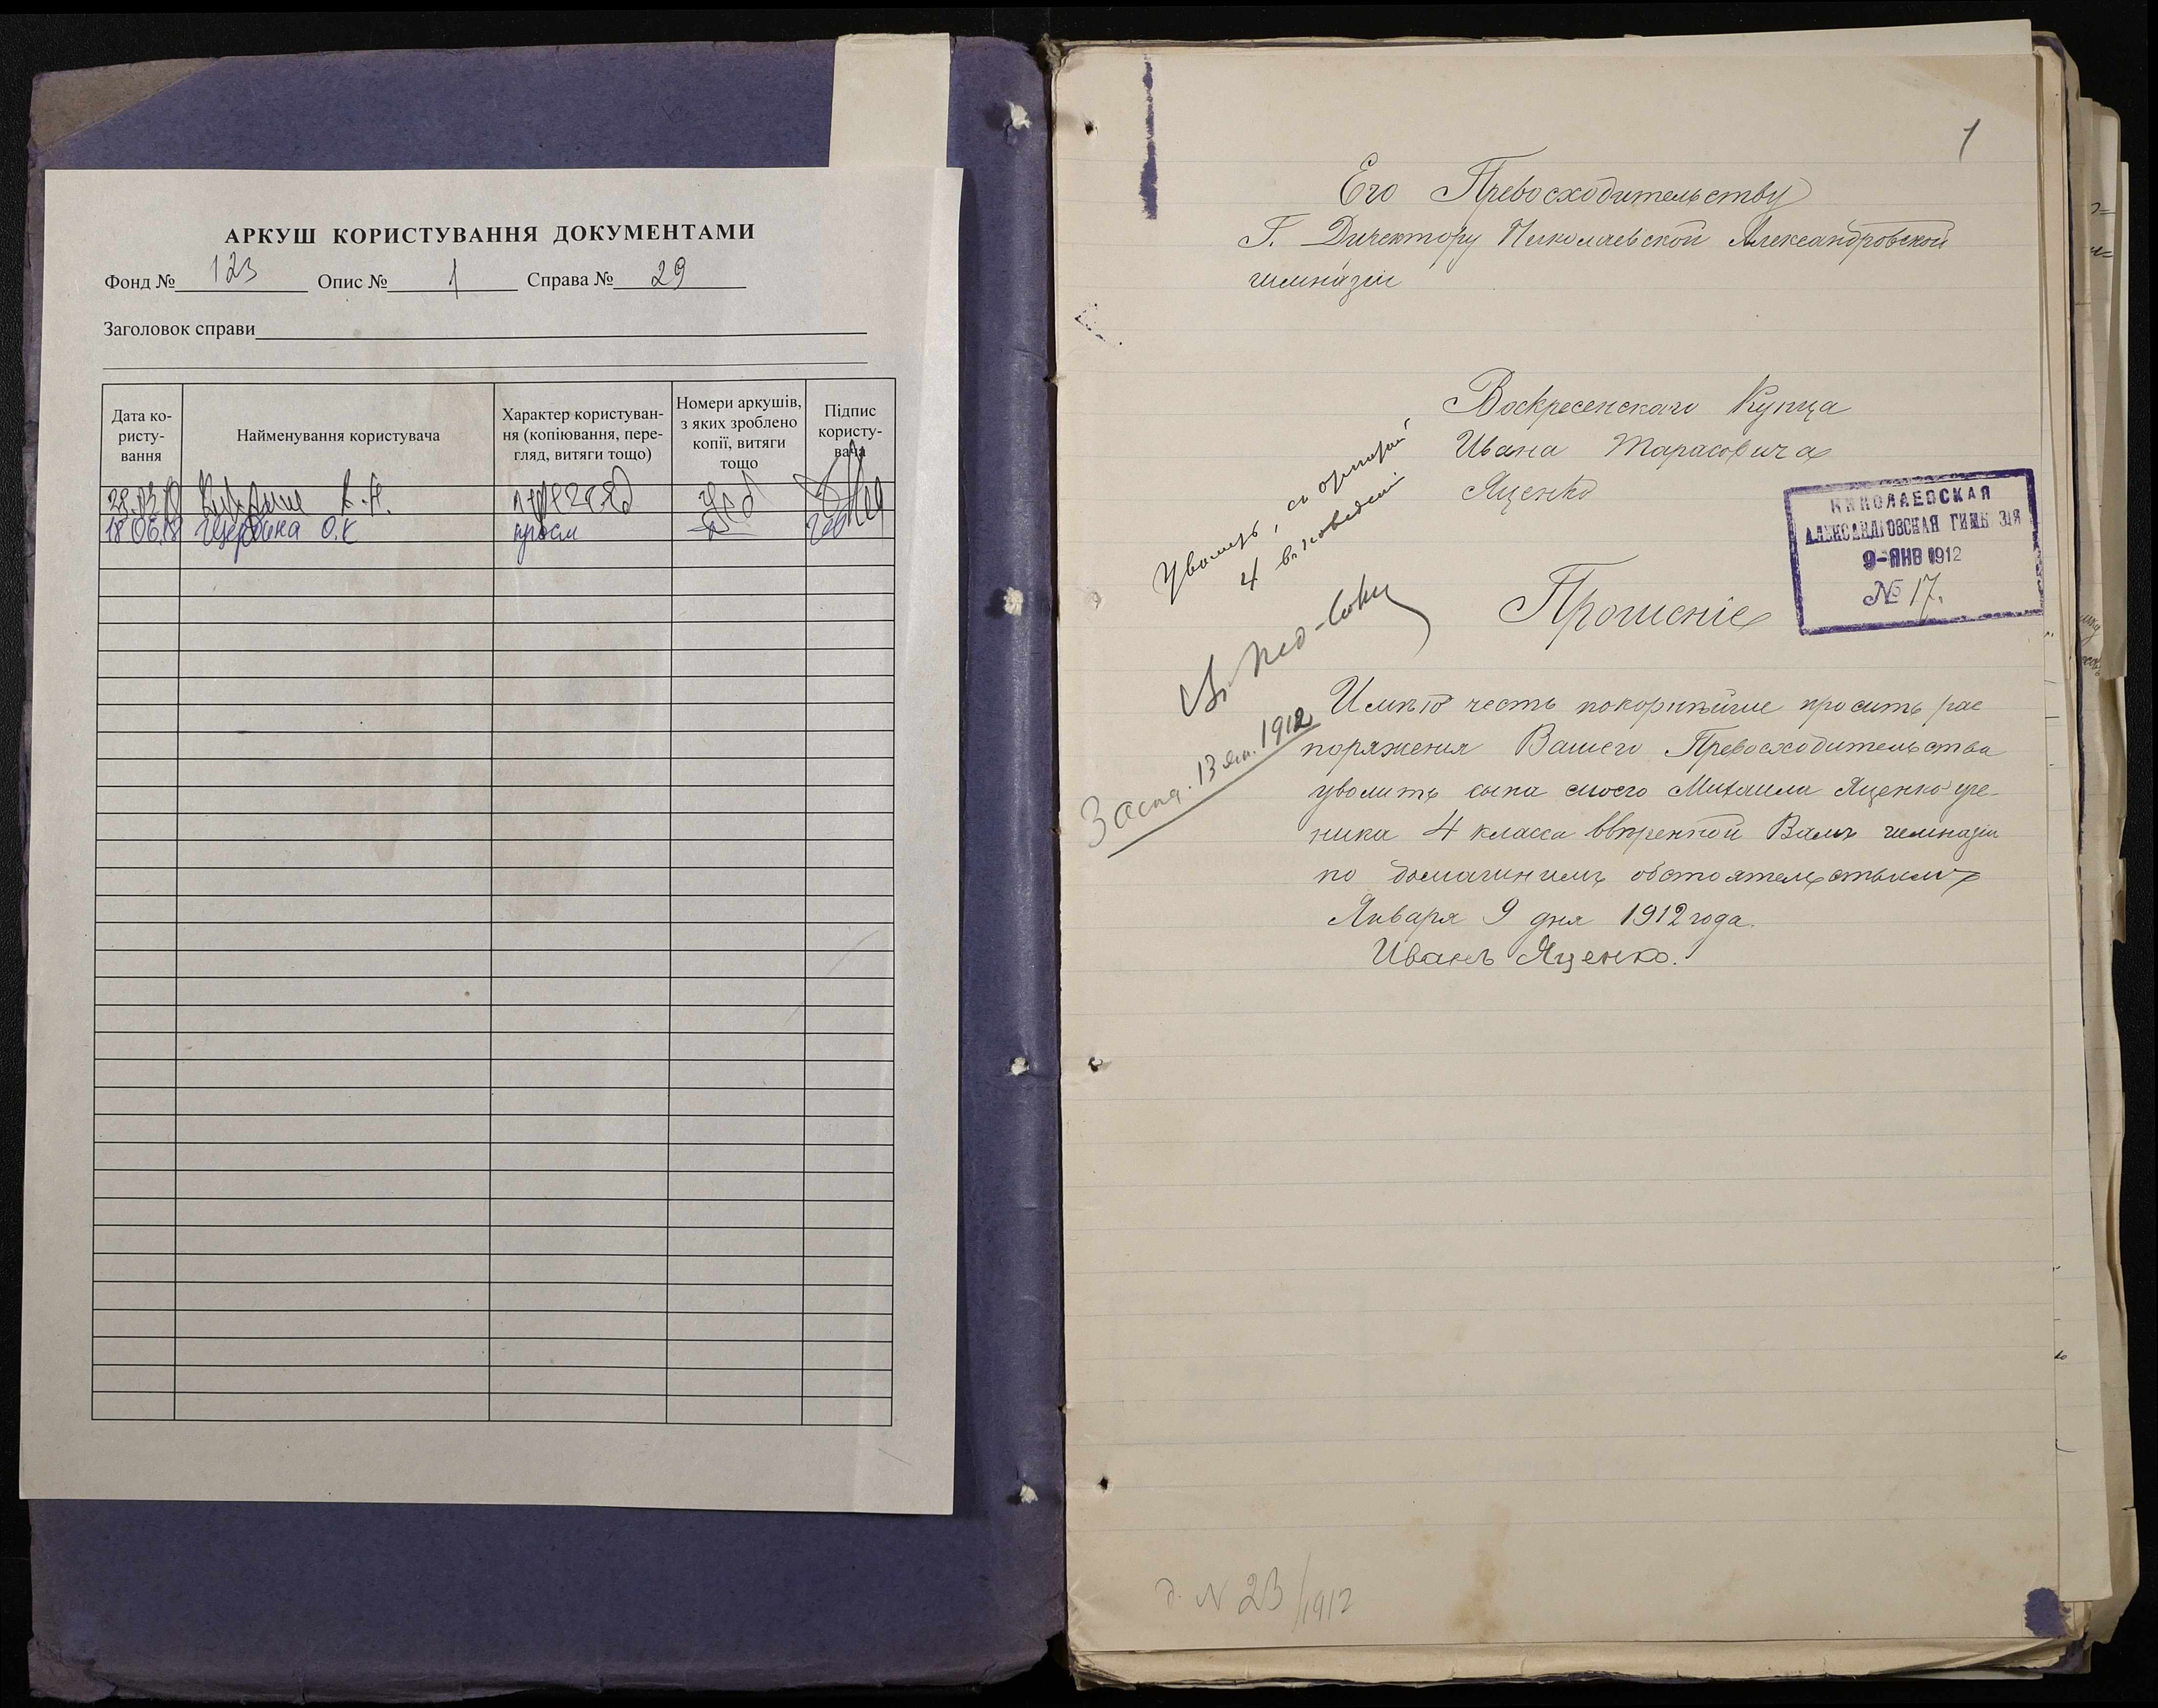 АРКУШ КОРИСТУВАННЯ ДОКУМЕНТАМИ
Фонд № 123 Опис № 1 Справа № 29
Заголовок справи
Дата ко-
ристу-
вання
Найменування користувача
Характер користуван-
ня (копіювання, пере-
гляд, витяги тощо)
Номери аркушів,
з яких зроблено
копії, витяги
тощо
Підпис
користу-
вача
перегляд
18.06.18 Щербина О.К просм
1
Его Превосходительству
Г. Директору Николаевской Александровской
гимназіи
Воскресенскаго Купца
Ивана Тарасовича
Яценко
НИКОЛАЕВСКАЯ
АЛЕКСАНДРОВСКАЯ ГИМН ЗІЯ
9-ЯНВ 1912
№ 17.
Уволить, съ
4 въ поведеніи
Въ Пед-Совѣт
Засѣд. 13 Янв. 1912
Прошеніе
Имѣю честь покорнѣйше просить рас
поряженія Вашего Превосходительства
уволить сына моего Михаила Яценко уче-
ника 4 класса ввѣренной Вамъ гимназіи
по домашнимъ обстоятельствамъ
Января 9 дня 1912 года.
Иванъ Яценко.
д. N 23/1912